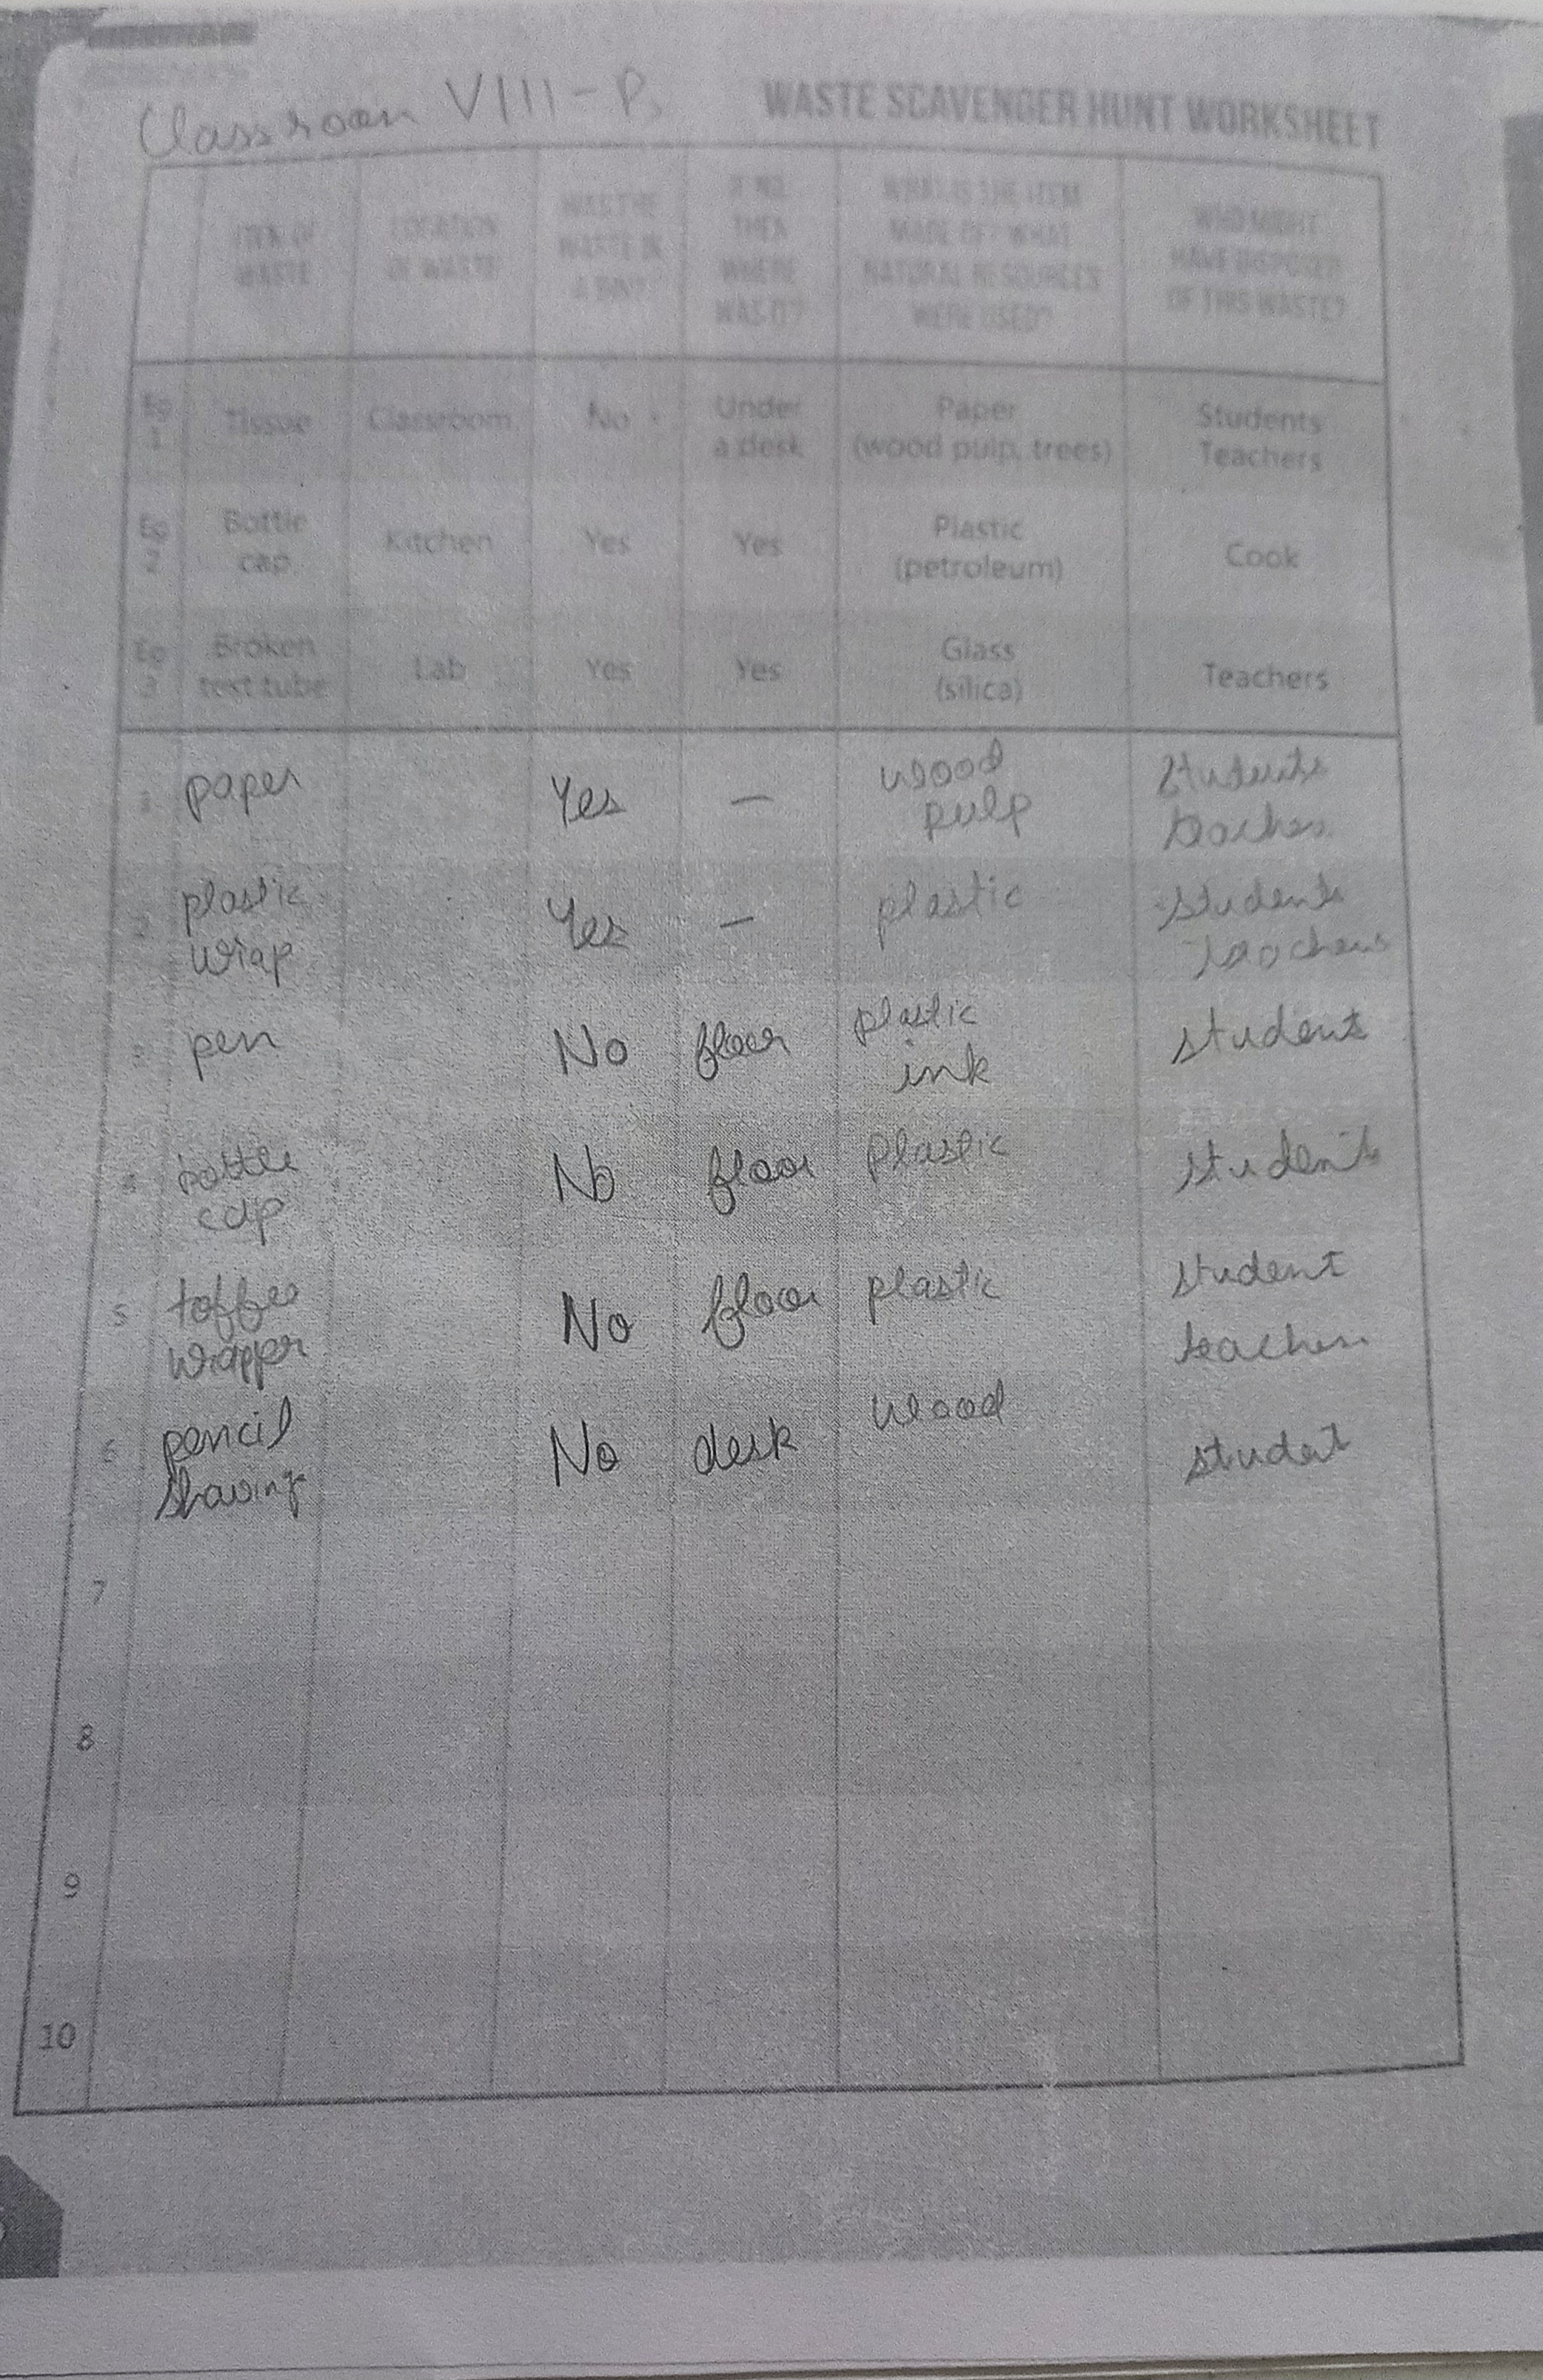 Classroom VIII-B
WASTE SCAVENGER HUNT WORKSHEET
ITEM OF WASTE
LOCATION OF WASTE
WAS THE WASTE IN A BIN?
IF NO, THEN WHERE WAS IT?
WHAT IS THE ITEM MADE OF? WHAT NATURAL RESOURCES WERE USED?
WHO MIGHT HAVE DISPOSED OF THIS WASTE?
Eg 1 Tissue Classroom No Under a desk Paper (wood pulp, trees) Students Teachers
Eg 2 Bottle cap Kitchen Yes Yes Plastic (petroleum) Cook
Eg 3 Broken test tube Lab Yes Yes Glass (silica) Teachers
1 paper Yes — wood pulp Students teacher
2 plastic wrap Yes — plastic students teachers
3 pen No floor plastic ink student
4 bottle cap No floor Plastic student
5 toffee wrapper No floor plastic student teacher
6 pencil shaving No desk wood studet
7
8
9
10